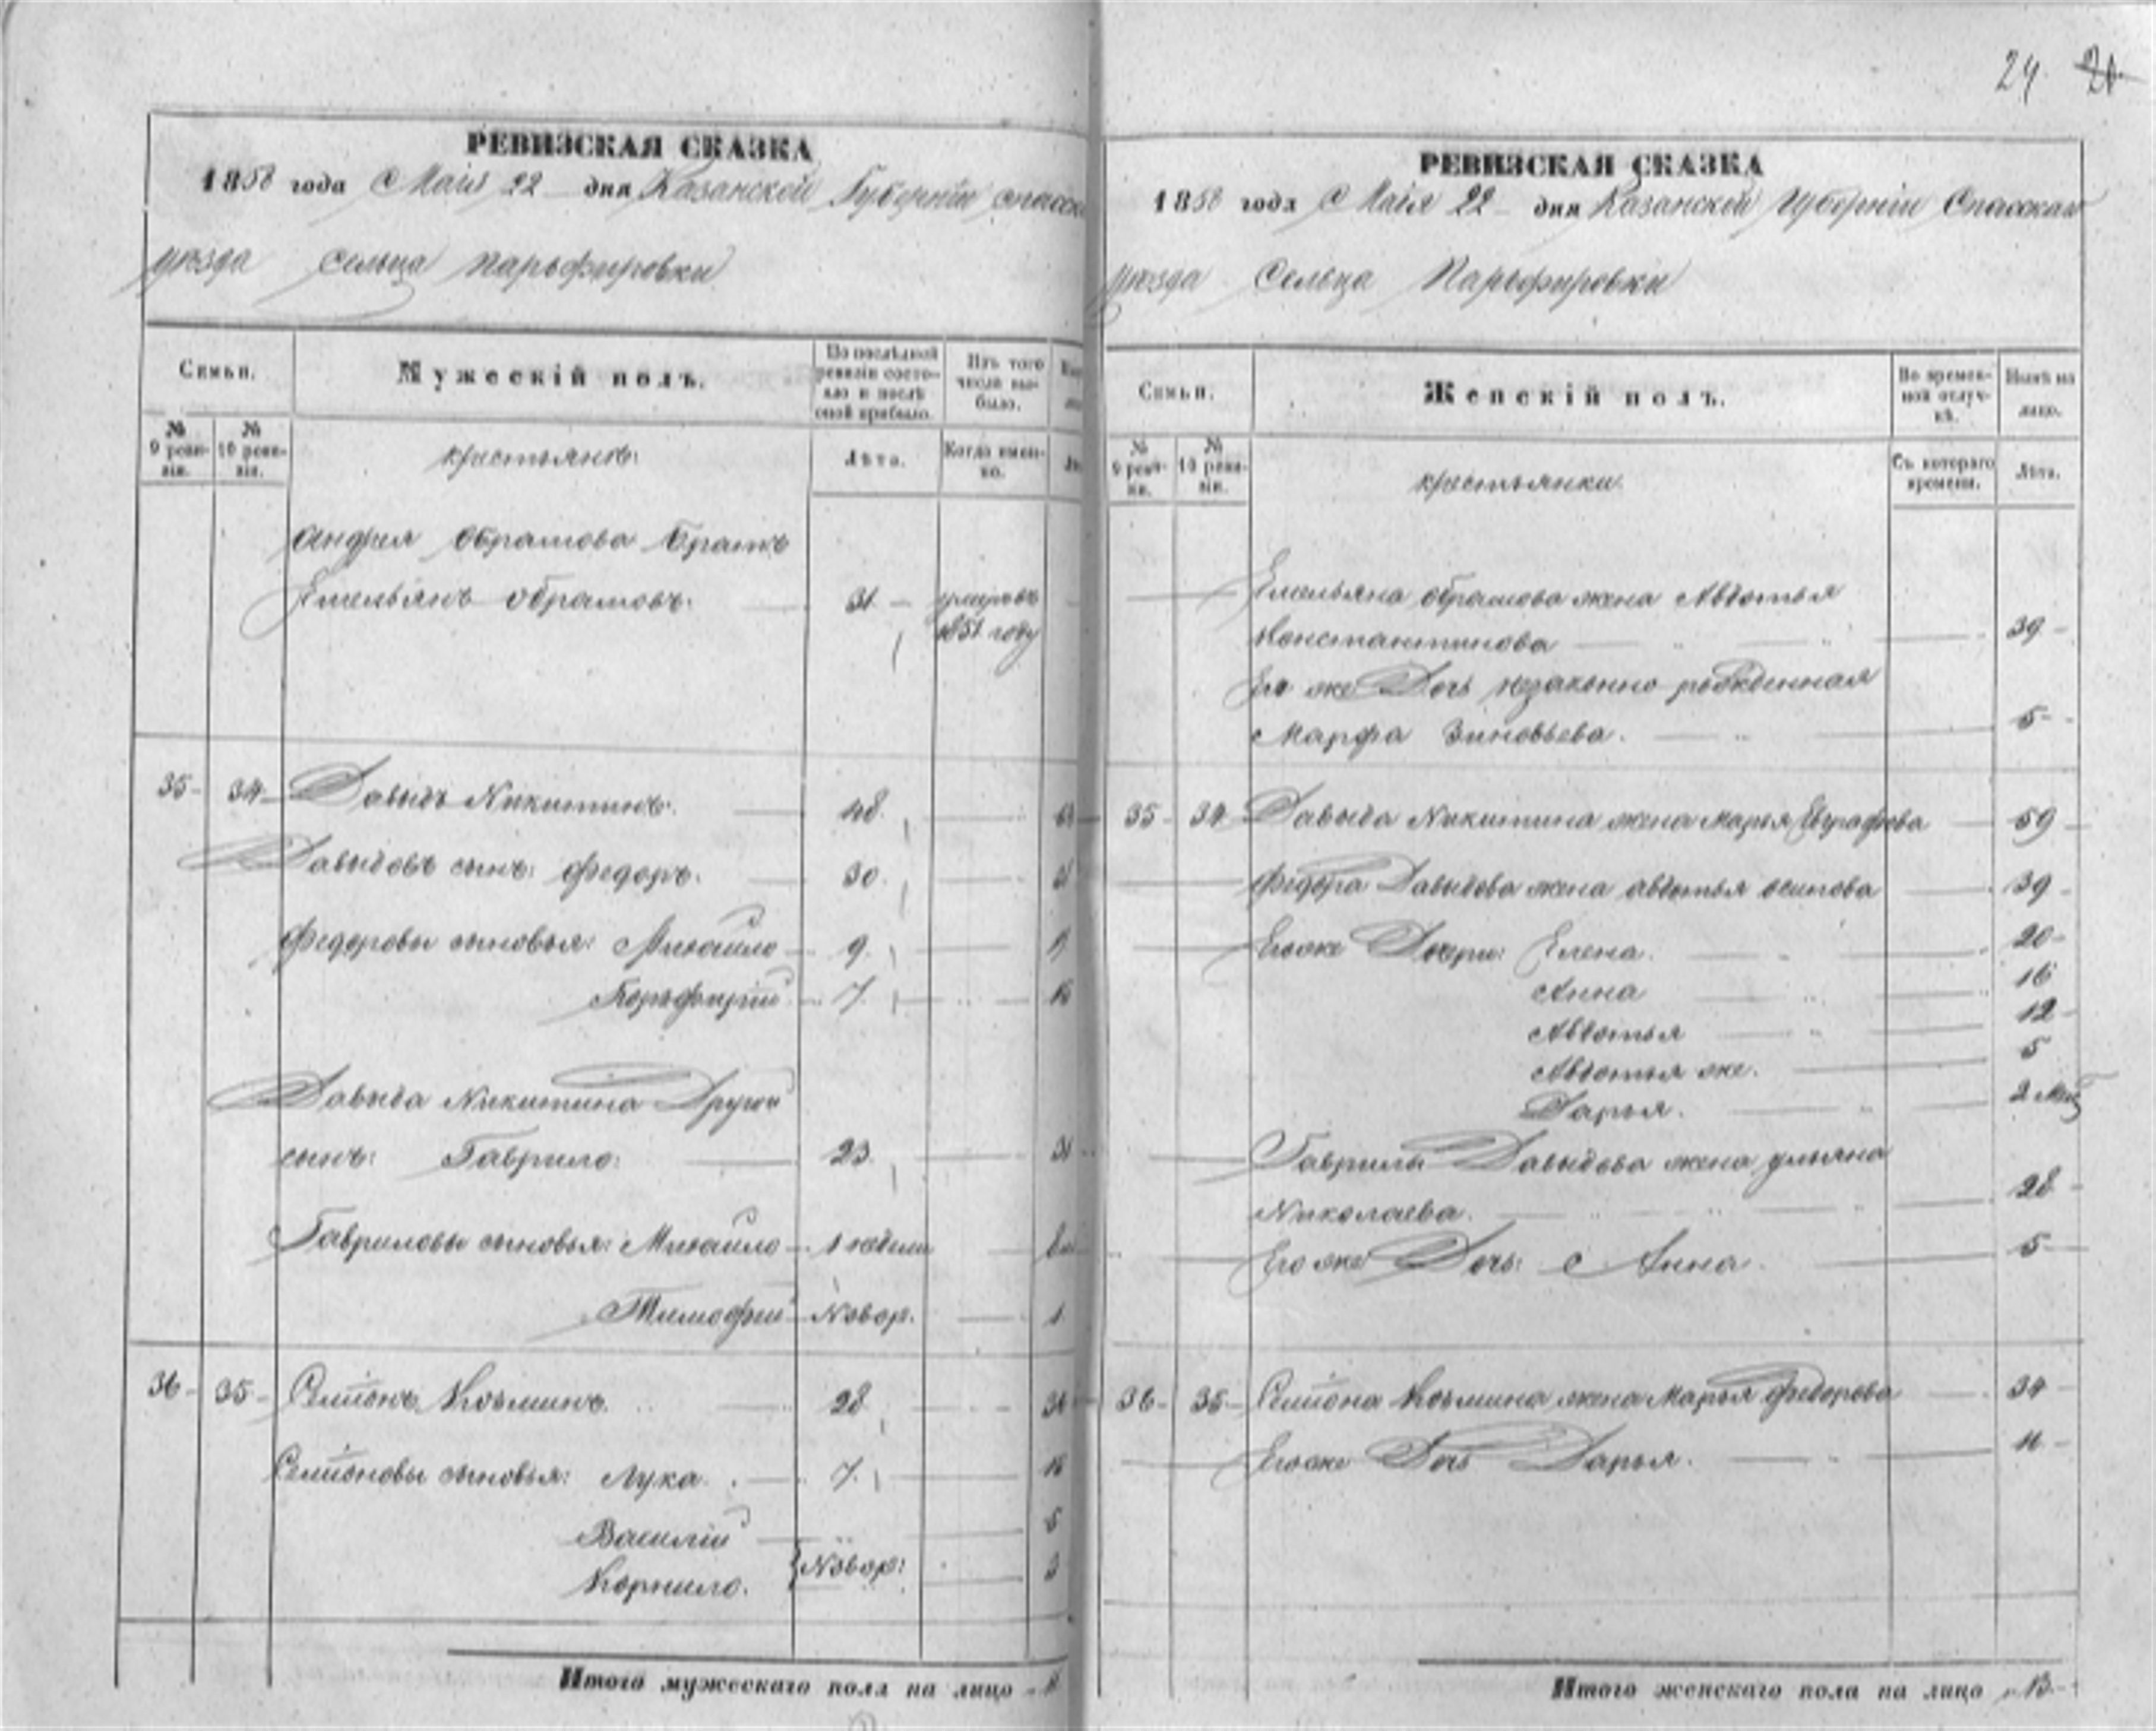 24 21
РЕВИЗСКАЯ СКАЗКА
1858 года Маія 22 дня Казанской Губерніи Спасск
уезда Сельца Парьфировки
Семьи.
Мужескій полъ.
По послѣдней ревизіи состояло и послѣ оной прибыло.
Изъ того числа выбыло.
№ 9 ревизіи.
№ 10 ревизіи.
крестьянъ:
Лѣта.
Когда именно.
Андрея Обрамова братъ
Емельянъ Обрамовъ. 31 умеръ въ 1851 году
35 34 Давыдъ Никитинъ. 48
Давыдовъ сынъ: Федоръ. 30
Федоровы сыновья: Михайло 9
Порьфирій 7
Давыда Никитина Другой
сынъ: Гаврило: 23
Гавриловы сыновья: Михайло 1 недели
Тимофей Новор. 1
36 35 Семионъ Козьминъ. 28
Семионовы сыновья: Лука. 7
Василій 5
Корнило. Новор: 3
Итого мужескаго пола на лицо
РЕВИЗСКАЯ СКАЗКА
1858 года Маія 22 дня Казанской Губерніи Спасскаго
уезда Сельца Парьфировки
Семьи.
Женскій полъ.
Во временной отлучкѣ.
Нынѣ на лицо.
№ 9 ревизіи.
№ 10 ревизіи.
крестьянки.
Съ котораго времени.
Лѣта.
Емельяна Обрамова жена Авдотья
Константинова 39
Его же Дочь незаконно рожденная
Марфа Зиновьева. 5
35 34 Давыда Никитина жена Марья Евграфова 59
Федора Давыдова жена авдотья осипова 39
Его же Дочери: Елена. 20
Анна 16
Авдотья 12
Авдотья же. 5
Дарья. 2 Мес
Гаврилы Давыдова жена ульяна
Николаева. 28
Его же Дочь: Анна 5
36 35 Семиона Козьмина жена Марья Федорова 34
Его же Дочь Дарья. 11
Итого женскаго пола на лицо 13